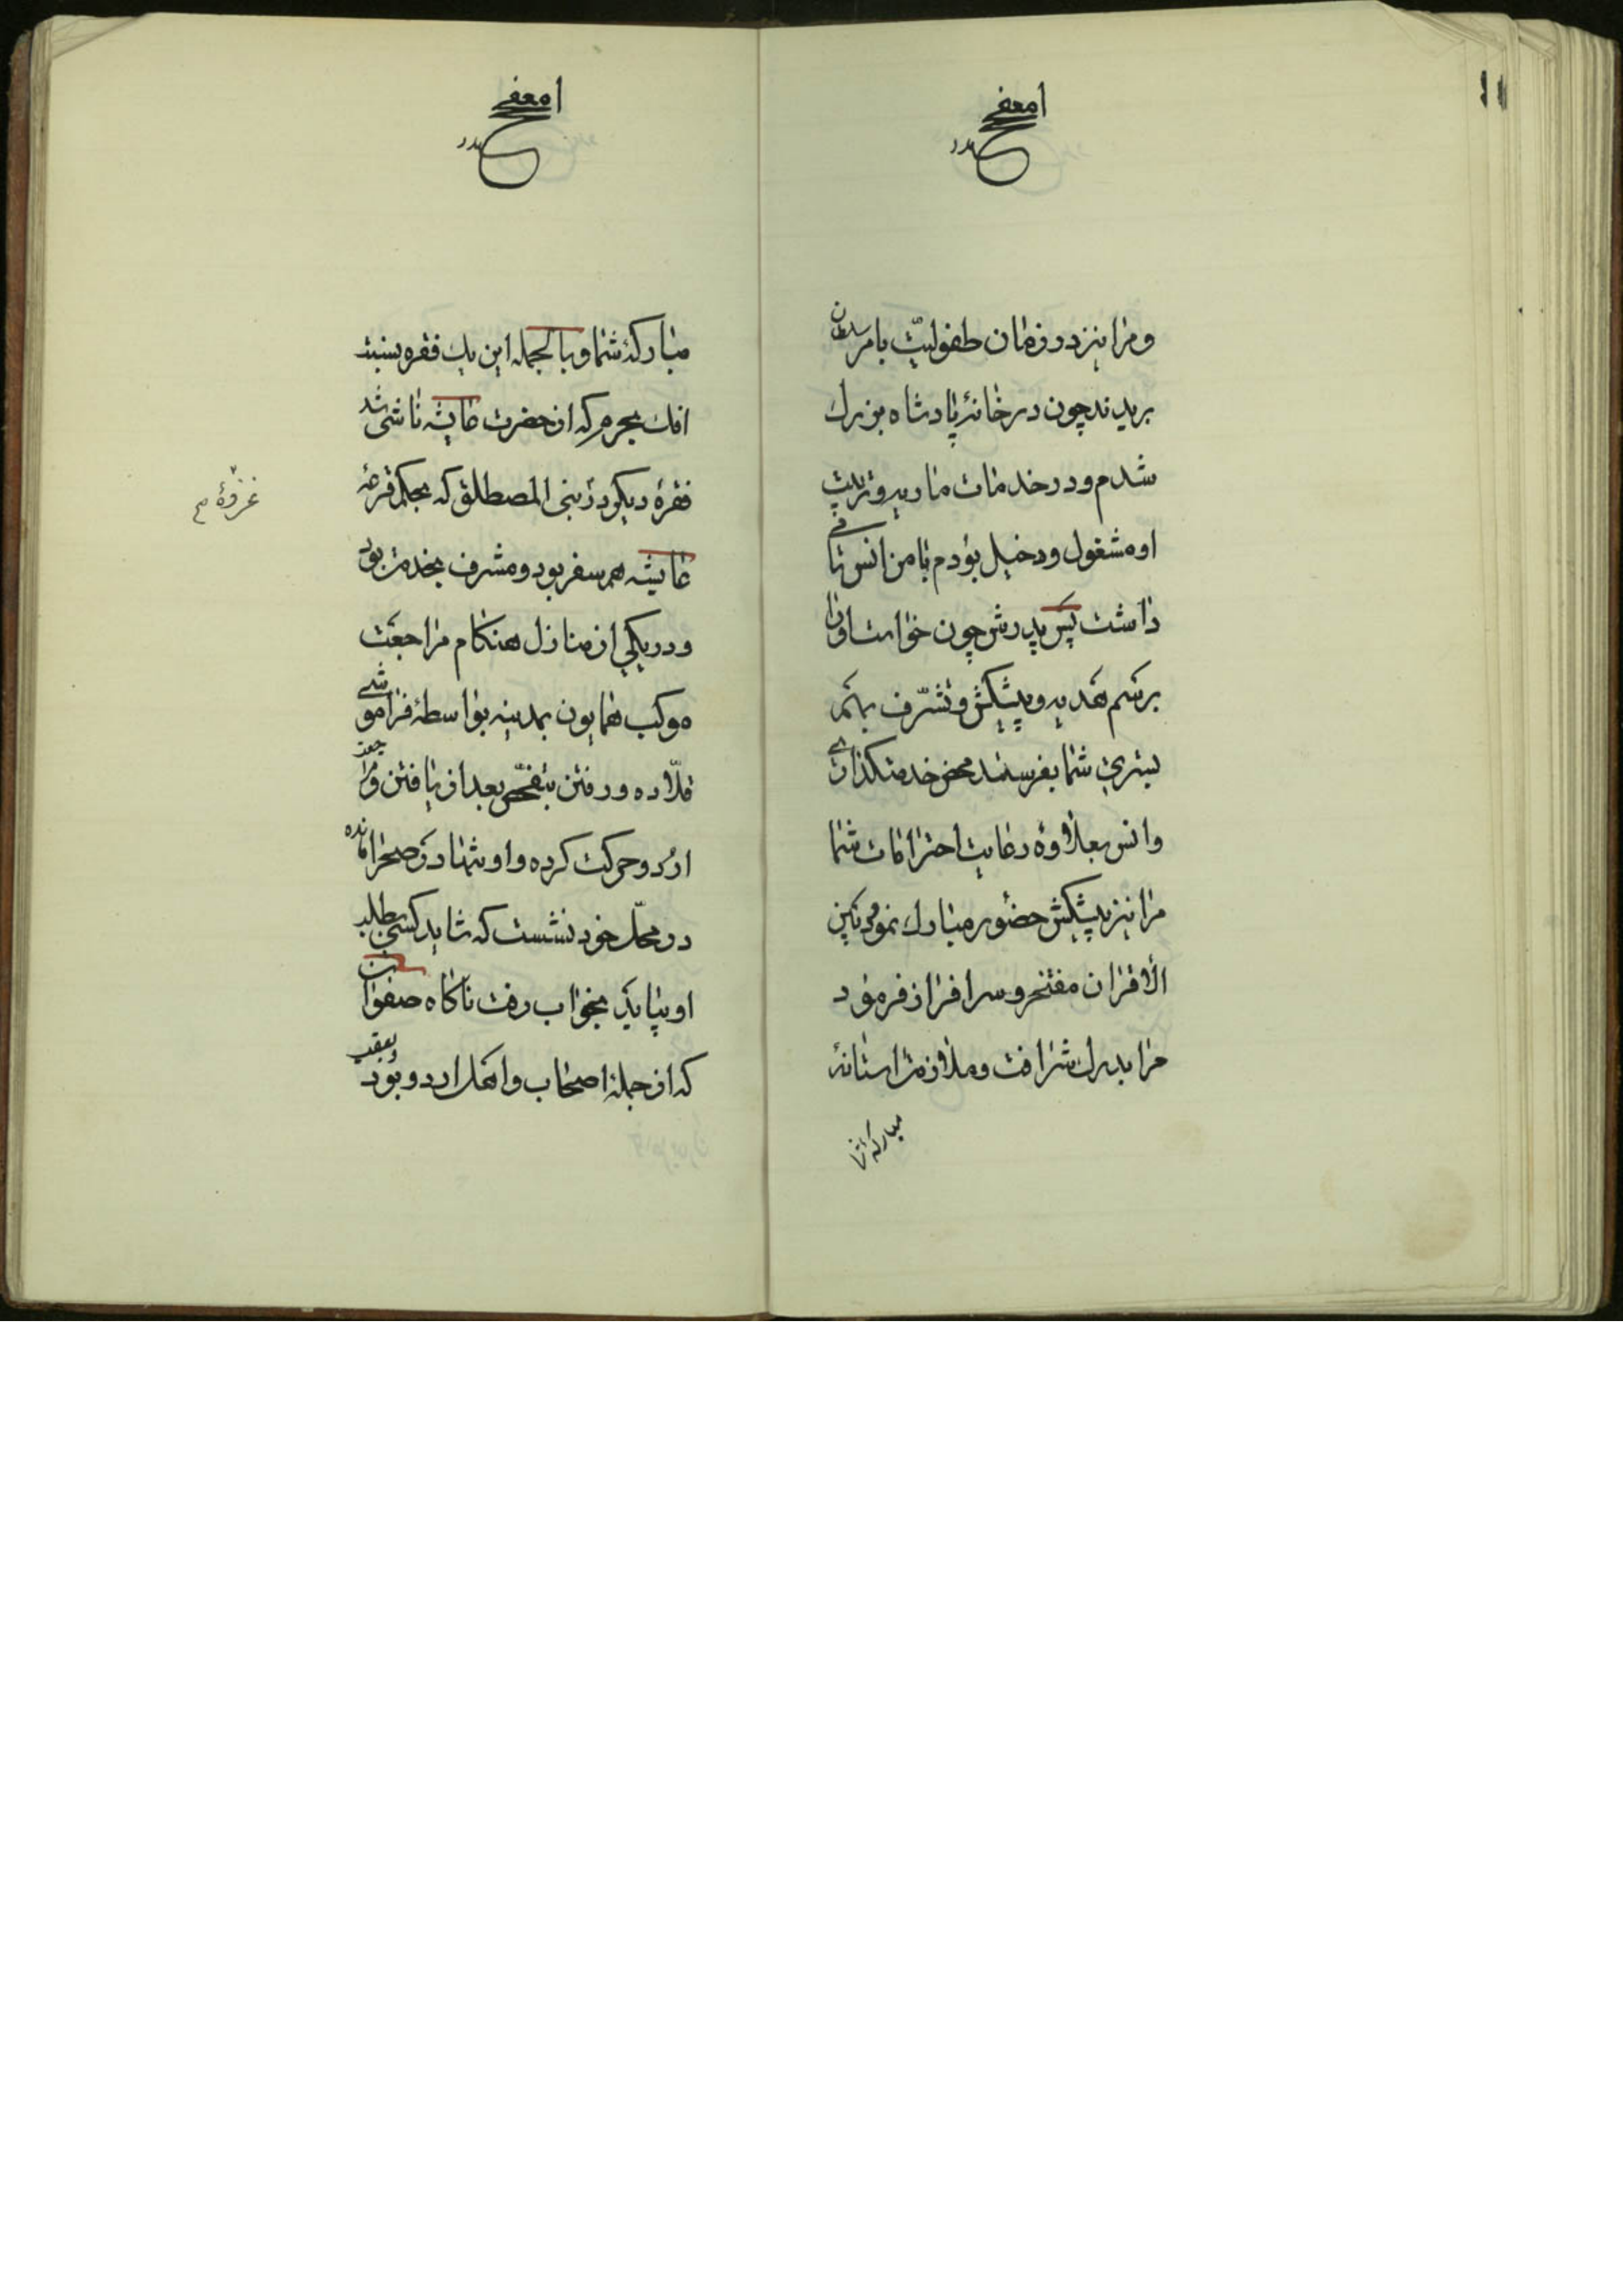 و مرا نیز در زمان طفولیّت بامر سلطان
بریدند چون در خانهٔ پادشاه بزرك
شدم و در خدمات ماریه و تربیت
او مشغول و دخیل بودم با من انس تمامی
داشت پس پدرش چون خواست او را
برسم هدیه و پیشکش و تشرّف بهم
بستری شما بفرستد محض خدمتکذاری
و انس بعلاوهٔ رعایت احترامات شما
مرا نیز پیشکش حضور مبارك نمود و بین
الأقران مفتخر و سرافراز فرمود
مرا بدرك شرافت و ملازمت استانهٔ
مبارکهٔ
مبارکهٔ شما و بالجمله این یك فقره بسبب
افك بجرم که از حضرت عایشه ناشی شد
فقرهٔ دیکر در بنی المصطلق که بحکم قرعه
عایشه همسفر بود و مشرف بخدمت بود
و در یکی از منازل هنکام مراجعت
موکب همایون بمدینه بواسطهٔ فراموشی
قلّاده و رفتن بتفحّص بعد از یافتن و مراجعت
اردو حرکت کرده و او تنها در صحرا مانده
در محلّ خود نشست که شاید کسی بطلب
او بیاید بخواب رفت ناکاه صفوان
که از جملهٔ اصحاب و اهل اردو بود